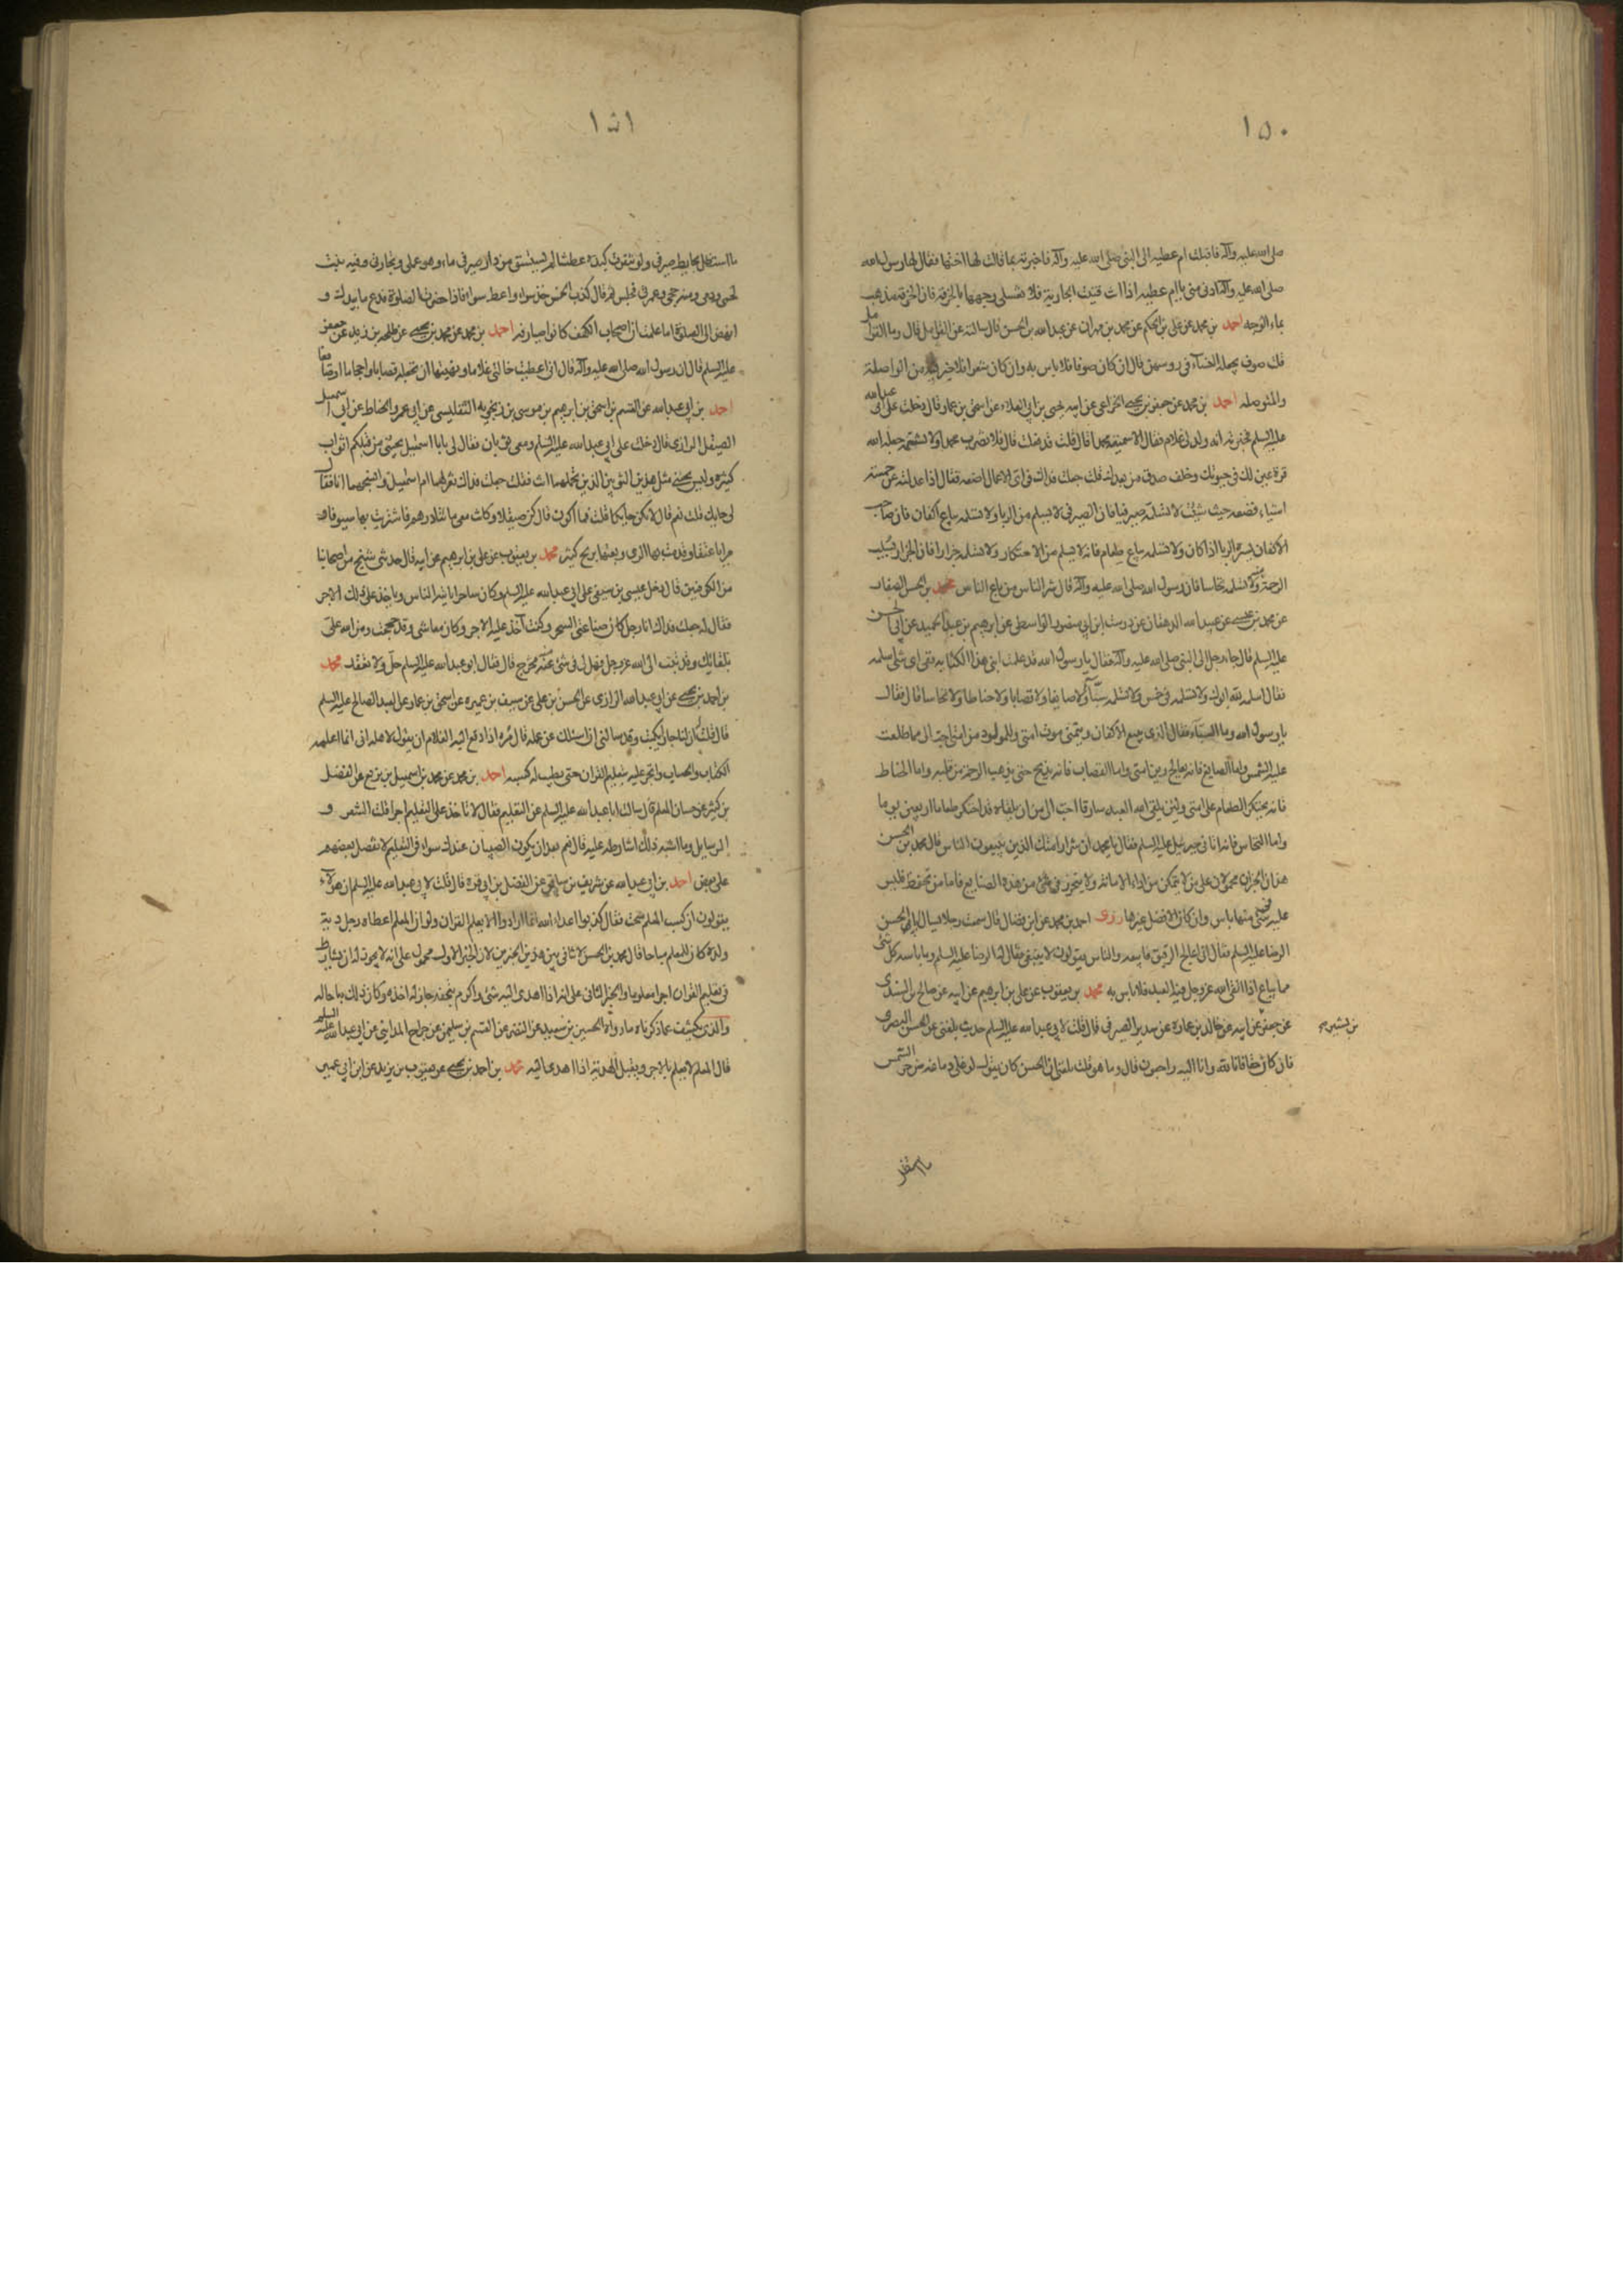 ١٥٠
صلى الله عليه وآله فاقبلت ام عطيه الى النبي صلى الله عليه وآله فاخبرته بما قالت لها اختها فقال لها رسول الله
صلى الله عليه وآله ادني مني يا ام عطيه اذا انت قنيت الجارية فلا تغسلي وجهها بالخرقة فان الخرقة تذهب
بماء الوجه احمد بن محمد عن علي بن الحكم عن محمد بن مهران عن عبد الله بن الحسن قال سالته عن القرامل قال وما القرامل
قلت صوف يجعله النساء في روسهن قال ان كان صوفا فلا باس به وان كان شعرا فلا خير فيه من الواصلة
والموتصله احمد بن محمد عن جعفر بن يحيى الخزاعي عن ابيه يحيى بن ابي العلاء عن اسحق بن عمار قال دخلت على ابي عبد الله
عليه السلم فخبرته انه ولد لي غلام فقال الا سميته محمدا قال قلت قد فعلت قال فلا تضرب محمدا ولا تشتمه جعله الله
قرة عين لك في حيوتك وخلف صدق من بعدك قلت جعلت فداك في اي الاعمال اضعه فقال اذا عدلته عن خمسة
اشياء فضعه حيث شئت لا تسلمه صيرفيا فان الصيرفي لا يسلم من الربا ولا تسلمه بياع اكفان فان صاحب
الاكفان يسره الوبا اذا كان ولا تسلمه بياع طعام فانه لا يسلم من الاحتكار ولا تسلمه جزارا فان الجزار تسلب
منه الرحمة ولا تسلمه نخاسا فان رسول الله صلى الله عليه وآله قال شر الناس من باع الناس محمد بن الحسن الصفار
عن محمد بن عيسى عن عبيد الله الدهقان عن درست ابن ابي منصور الواسطي عن ابرهيم بن عبد الحميد عن ابي الحسن
عليه السلم قال جاء رجل الى النبي صلى الله عليه وآله فقال يا رسول الله قد علمت ابني هذا الكتابه ففي اي شي اسلمه
فقال اسلمه لله ابوك ولا تسلمه في خمس ولا تسلمه سبّاء ولا صايغا ولا قصابا ولا حناطا ولا نخاسا قال فقال
يا رسول الله وما السبّاء فقال الذي يبيع الاكفان ويتمنى موت امتي وللمولود من امتي احب الي مما طلعت
عليه الشمس واما الصايغ فانه يعالج وين امتي واما القصاب فانه يذبح حتى يذهب الرحمة من قلبه واما الحناط
فانه يحتكر الطعام على امتي ولئن يلقى الله العبد سارقا احب الى من ان يلقاه قد احتكر طعاما اربعين يوما
واما النخاس فانه اتاني جبرئيل عليه السلم فقال يا محمد ان شرار امتك الذين يبيعون الناس قال محمد بن الحسن
هذان الخبران محمولان على من لا يتمكن من اداء الامانة ولا يتحرز في شئ من هذه الصنايع فاما من تحفظ فليس
عليه في شئ منها باس وان كان الافضل غيرها روى احمد بن محمد عن ابن فضال قال سمعت رجلا يسال ابا الحسن
الرضا عليه السلم فقال اني اعالج الرقيق فابيعه والناس يقولون لا ينبغي فقال له الرضا عليه السلم وما باسه كل شئ
مما يباع اذا اتقى الله عز وجل فيه العبد فلا باس به محمد بن يعقوب عن علي بن ابرهيم عن ابيه عن صالح بن السندي
عن جعفر عن ابيه عن خالد بن عمارة عن سدير الصيرفي قال قلت لابي عبد الله عليه السلم حديث بلغني عن الحسن البصري
بن بشير صح
فان كان حقا فانا لله وانا اليه راجعون قال وما هو قلت بلغني ان الحسن كان يقول لو غلى دماغه من حر الشمس
ما استظل
١٥١
ما استظل بحايط صيرفي ولو تفرثت كبده عطشا لم يستسق من دار صيرفي ماء وهو عملي وتجارتي وفيه نبت
لحمي ودمي ومنه حجي وعمرتي فجلس ثم قال كذب الحسن خذ سواء واعط سواء فاذا حضرت الصلوة فدع ما بيدك و
انهض الى الصلوة اما علمت ان اصحاب الكهف كانوا صيارفه احمد بن محمد عن محمد بن يحيى عن طلحه بن زيد عن جعفر
عليه السلم قال ان رسول الله صلى الله عليه وآله قال اني اعطيت خالتي غلاما ونهيتها ان تجعله قصابا او حجاما او صايغا
احمد بن ابي عبد الله عن القسم بن اسحق بن ابرهيم بن موسى بن زنجويه التفليسي عن ابي عمر والحناط عن ابي اسمعيل
الصيقل الرازي قال دخلت على ابي عبد الله عليه السلم ومعي ثوبان فقال لي يا با اسمعيل يجيئني من قبلكم اثواب
كثيره وليس يجئني مثل هذين الثوبين الذين تحملهما انت فقلت جعلت فداك تغزلهما ام اسمعيل وانسجهما انا فقال
لي حايك قلت نعم قال لا تكن حايكا قلت فما اكون قال كن صيقلا وكانت معي مائتا درهم فاشتريت بها سيوفا و
مرايا عتقا وقدمت بها الري وبعتها بربح كثير محمد بن يعقوب عن علي بن ابرهيم عن ابيه قال حدثني شيخ من اصحابنا
من الكوفيين قال دخل عيسى بن سيفي على ابي عبد الله عليه السلم وكان ساحرا ياتيه الناس وياخذ على ذلك الاجر
فقال له جعلت فداك انا رجل كان صناعتي السحر وكنت آخذ عليه الاجر وكان معاشي وقد حججت ومن الله علي
بلقائك وقد تبت الى الله عز وجل فهل لي في شئ منه مخرج قال فقال ابو عبد الله عليه السلم حل ولا تعقد محمد
بن احمد بن يحيى عن ابي عبد الله الرازي عن الحسن بن علي عن سيف بن عميره عن اسحق بن عمار عن العبد الصالح عليه السلم
قال قلت ان لنا جارا يكتب وقد سالني ان اسئلك عن عمله قال مره اذا دفع اليه الغلام ان يقول لاهله اني انما اعلمه
الكتاب والحساب واتجر عليه بتعليم القران حتى يطيب له كسبه احمد بن محمد عن محمد بن اسمعيل بن بزيع عن الفضل
بن كثير عن حسان المعلم قال سالت ابا عبد الله عليه السلم عن التعليم فقال لا تاخذ على التعليم اجرا قلت الشعر و
الرسايل وما اشبه ذلك اشارط عليه قال نعم بعد ان يكون الصبيان عندك سواء في التعليم لا تفضل بعضهم
على بعض احمد بن ابي عبد الله عن شريف بن سابق عن الفضل بن ابي قره قال قلت لابي عبد الله عليه السلم ان هؤلاء
يقولون ان كسب المعلم سحت فقال كذبوا اعداء الله انما ارادوا الا يعلم القران ولو ان المعلم اعطاه رجل دية
ولده كان للمعلم مباحا قال محمد بن الحسن لا تنافي بين هذين الخبرين لان الخبر الاول محمول على انه لا يجوز له ان يشارط
في تعليم القران اجرا معلوما والخبر الثاني على انه اذا اهدى اليه شئ واكرم بتحفه جاز له اخذه وكان ذلك مباحا له
والذي يكشف عما ذكرناه ما رواه الحسين بن سعيد عن النضر عن القسم بن سليمن عن جراح المدايني عن ابي عبد الله عليه السلم
قال المعلم لا يعلم بالاجر ويقبل الهدية اذا اهدى اليه محمد بن احمد بن يحيى عن يعقوب بن يزيد عن ابن ابي عمير